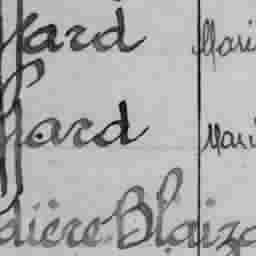 Gard Mari
Gard Mari
dière Blaiza